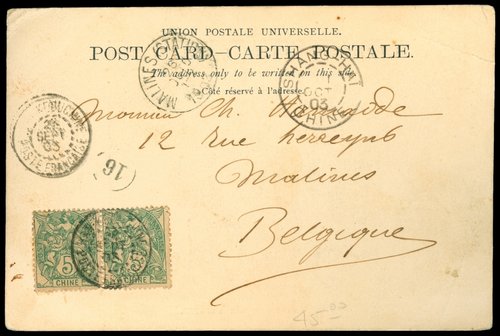 UNION POSTALE UNIVERSELLE.
POST CARD–CARTE POSTALE.
The address only to be written on this side.
Côté réservé à l'adresse.
MALINES (STATION)
SHANG-HAI
OCT
03
CHINE
Monsieur Ch.
12 rue
Malines
Belgique
SEPT
03
POSTE FRANÇAISE
16
5
CHINE
CHINE
45.00